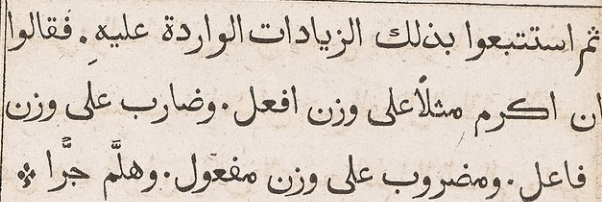 ثم استتبعوا بذلك الزيادات الواردة عليهِ. فقالوا
ان اكرم مثلًا على وزن افعل. وضارب على وزن
فاعل. ومضروب على وزن مفعول. وهلَّم جرًّا